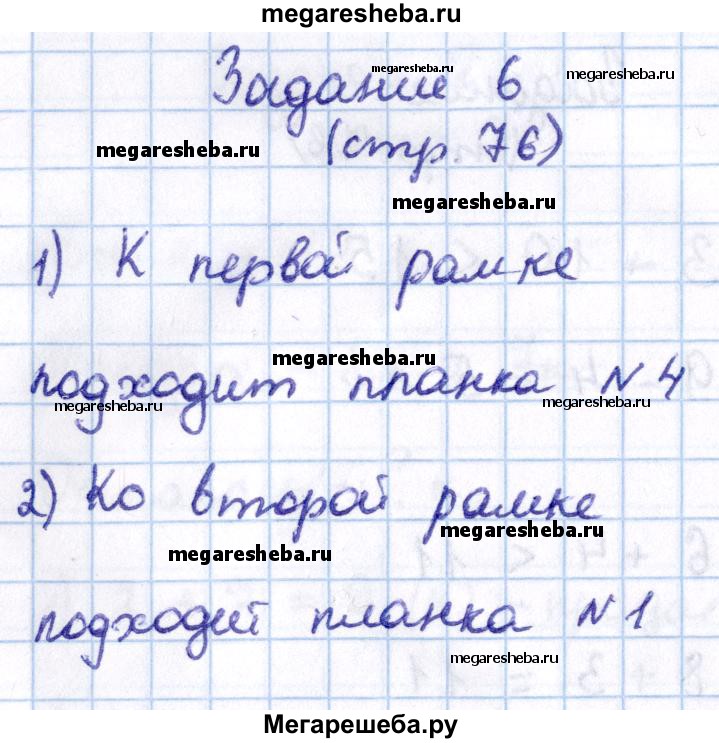 megaresheba.ru
Задание 6
megaresheba.ru
megaresheba.ru
(стр. 76)
megaresheba.ru
megaresheba.ru
1) К первой рамке
megaresheba.ru
подходит планка N 4
megaresheba.ru
megaresheba.ru
2) Ко второй рамке
megaresheba.ru
megaresheba.ru
подходит планка N 1
megaresheba.ru
Мегарешеба.ру